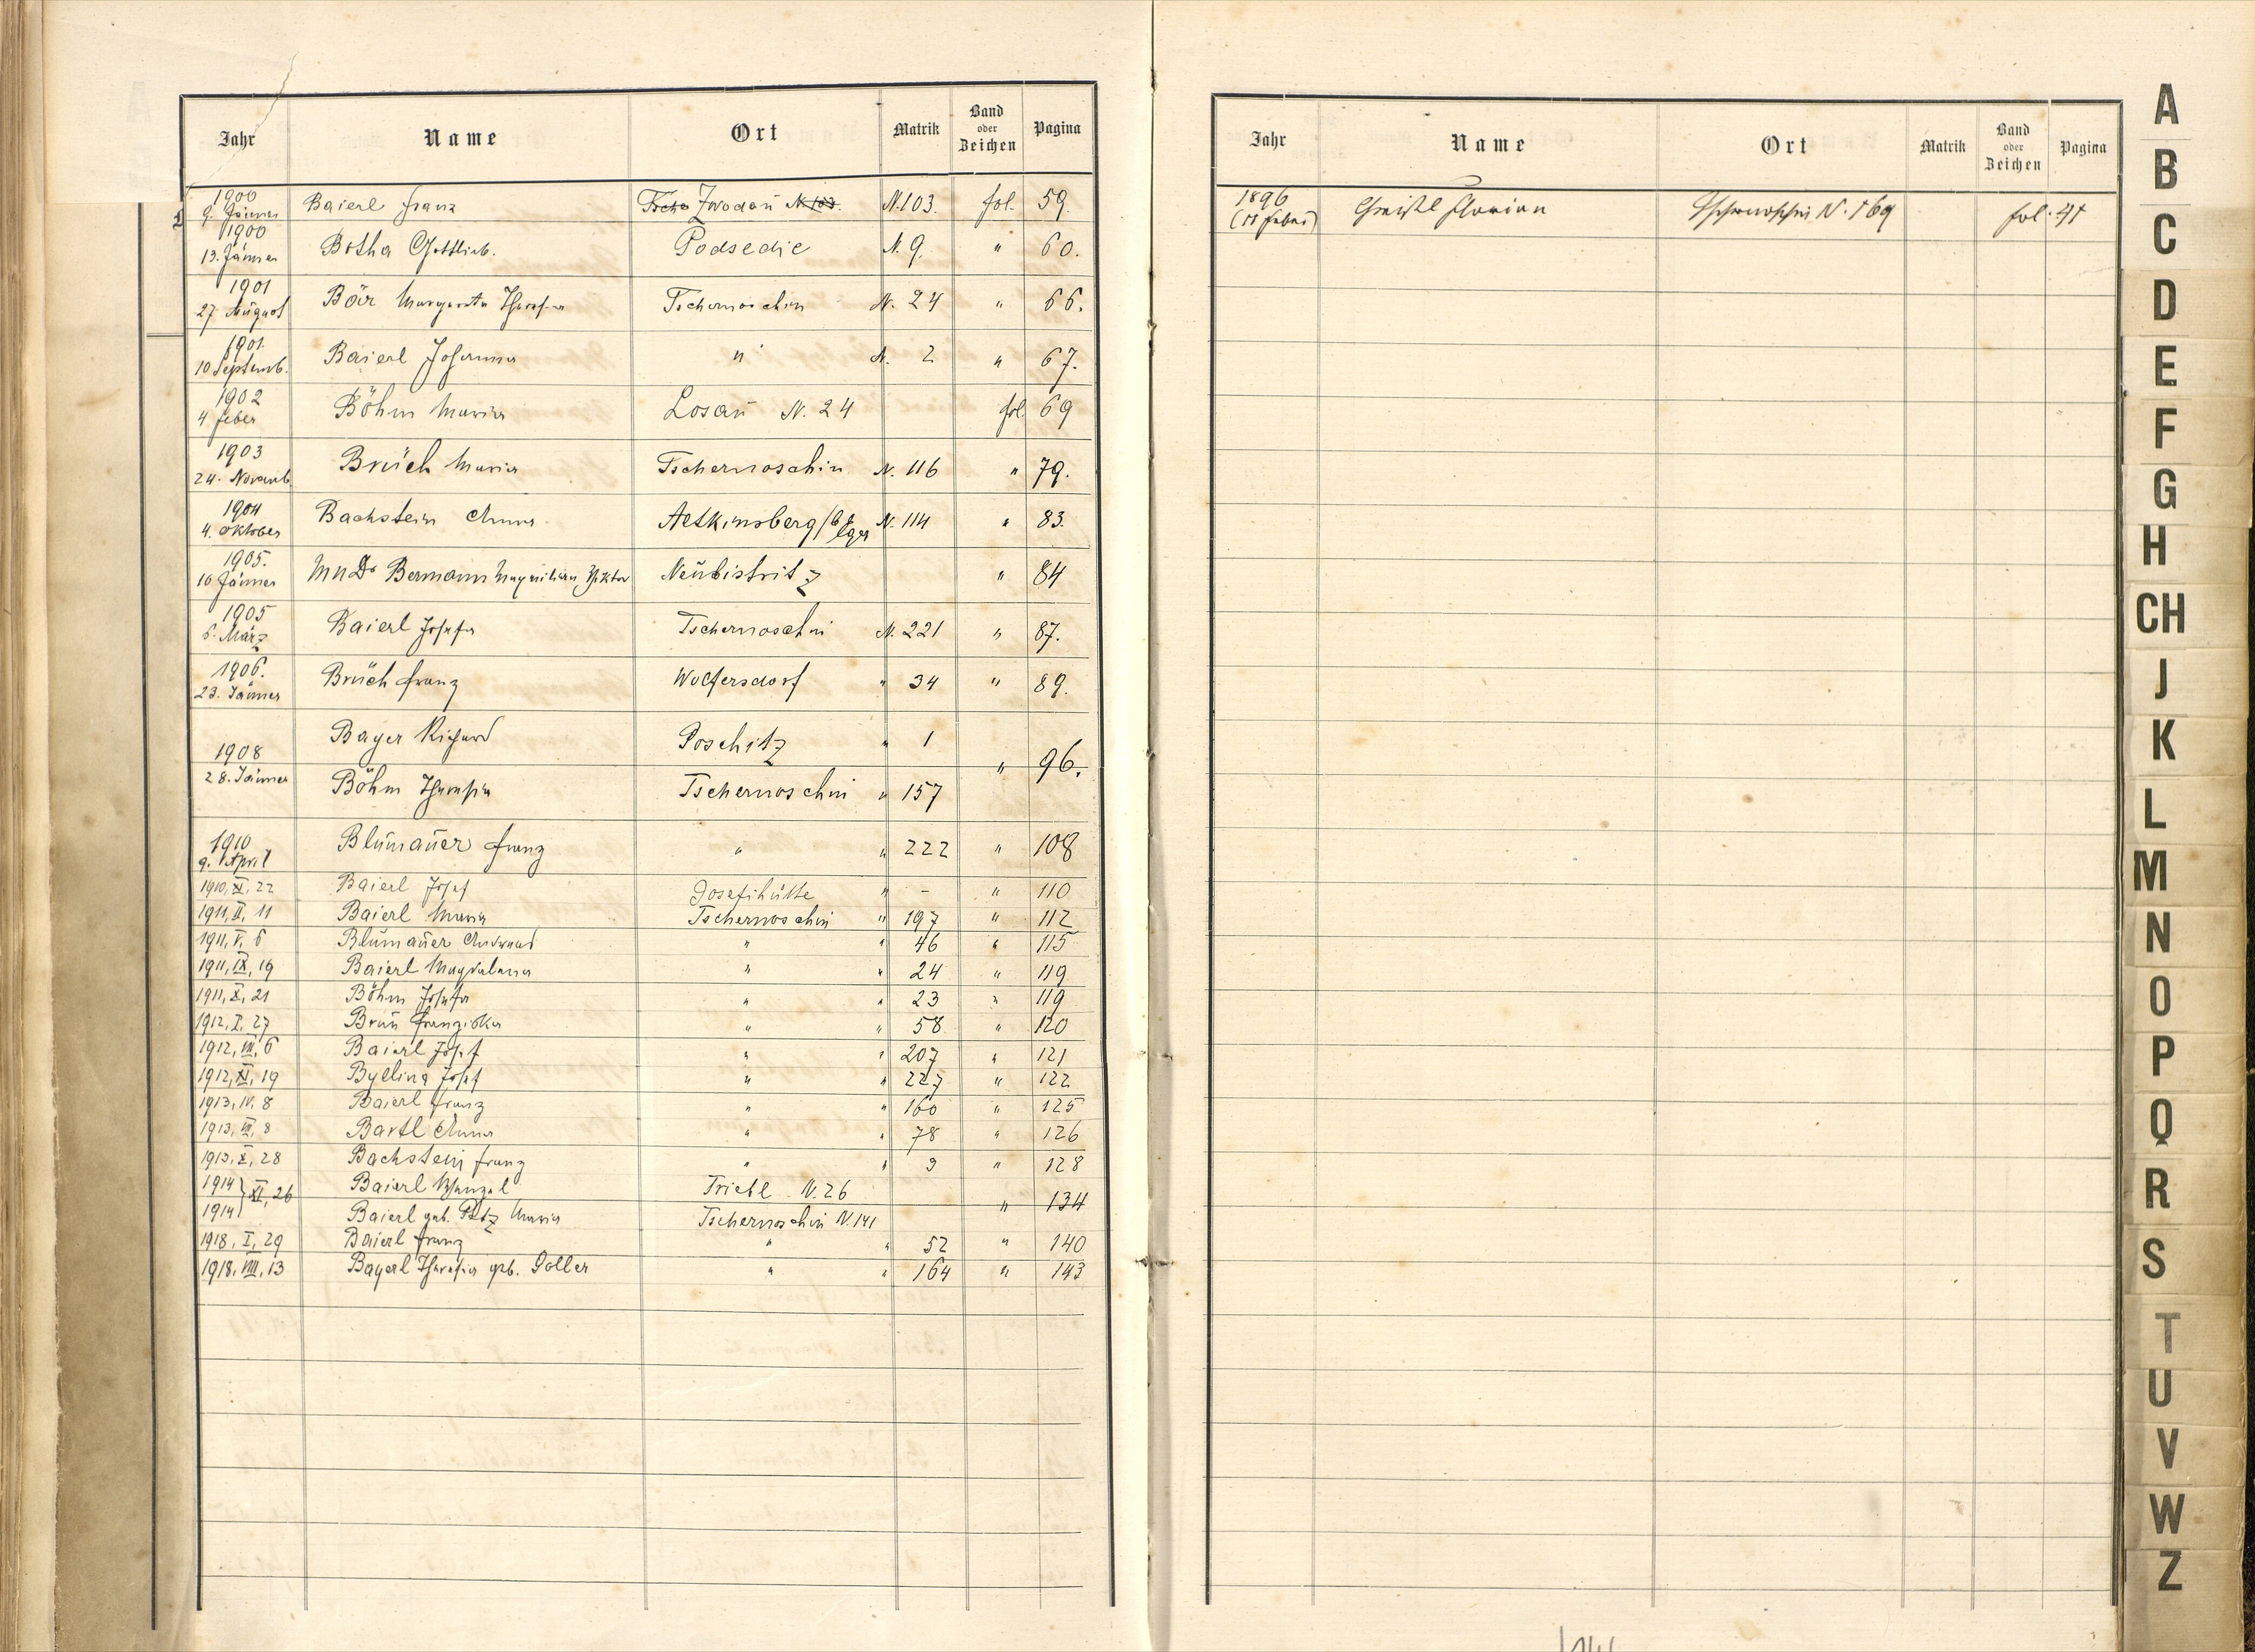 Jahr Name Ort Matrik Band oder Zeichen Pagina
1900
9. Jänner Baierl Franz Zwodau N. 103. fol. 59.
1900
13. Jänner Botha Gottlieb. Podsedic N. 9. " 60.
1901
27 August Bär Margareta Theresia Tschernoschin N. 24 " 66.
1901.
10 Septemb. Baierl Johanna " N. 2 " 67.
1902
4 Feber Böhm Maria Losau N. 24 fol. 69
1903
24. Novemb. Brüch Maria Tschernoschin N. 116 " 79.
1904
4. Oktober Bachstein Anna Aetkinsberg / Eger N. 114 " 83.
1905.
10 Jänner Bermann Maxmilian Viktor Neubistritz " 84
1905
6. März Baierl Josefa Tschernoschin N. 221 " 87.
1906.
23. Jänner Brüch Franz Wolfersdorf " 34 " 89.
Bayer Richard Poschitz " 1
1908
28. Jänner " 96.
Böhm Theresia Tschernoschin " 157
1910
9. April Blumauer Franz " " 222 " 108
1910, XI, 22 Baierl Josef Josefihütte " - " 110
1911, II, 11 Baierl Maria Tschernoschin " 197 " 112
1911, V, 6 Blumauer Andreas " " 46 " 115
1911, IX, 19 Baierl Magdalena " " 24 " 119
1911, X, 21 Böhm Josefa " " 23 " 119
1912, I, 27 Braun Franziska " " 58 " 120
1912, VII, 6 Baierl Josef " " 207 " 121
1912, XI, 19 Byllina Josef " " 227 " 122
1913, IV. 8 Baierl Franz " " 160 " 125
1913, VII, 8 Bartl Anna " " 78 " 126
1913. X, 28 Bachstein Franz " " 3 " 128
1914 Baierl Wenzel Triebl N. 26
XI, 26 " 134
1914 Baierl geb. Maria Tschernoschin N. 141
1918. I, 29 Baierl Franz " " 52 " 140
1918. VIII, 13 Bayerl Theresia geb. Goller " " 164 " 143
Jahr Name Ort Matrik Band oder Zeichen Pagina
1896
(11 Feber) Christl Florian Tschernoschin N. 169 fol. 41
A
B
C
D
E
F
G
H
CH
J
K
L
M
N
O
P
Q
R
S
T
U
V
W
Z